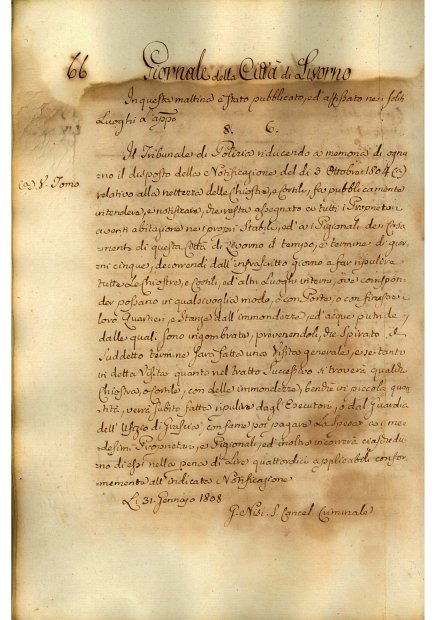 66 Giornale della Città di Livorno
In questa mattina è stato pubblicato, ed'affissato nei soliti
Luoghi l'appo
8. 6.
Il Tribunale di Polizia riducendo a memoria di ognu
no il disposto della Notificazione del dì 3 Ottobre 1804 (a)
(a) V. Tomo
relativo alla nettezza delle Chiostre, e Cortili, fa pubblicamente
intendere, e notificare, che resta assegnato a tutti i Proprietarj
aventi abitazione nei proprj Stabili, ed'a i Pigionali dei Casa
menti di questa Città di Livorno il tempo, e termine di gior
ni cinque, decorrendi dall'infrascritto giorno a far ripulire
tutte le Chiostre, e Cortili, ed'altri Luoghi interni, ove corrispon
der possano in qualsivoglia modo, o con Porte, o con finestre i
loro Quartieri, e Stanze dall'immondezze, ed'acque putride
dalle quali sono ingombrate, prevenendoli, che spirato il
suddetto termine sarà fatta una Visita generale, e se tanto
in detta Visita quanto nel tratto successivo si troverà qualche
Chiostra, o Cortile, con delle immondezze, benchè in piccola quan
tità, verrà subito fatta ripulire dagl'Esecutori, o dal Guardia
dell'Ufizio di con fare poi pagare la spesa ai me
desimi Proprietarj, e Pigionali, ed'inoltre incorrerà ciaschedu
no di essi nella pena di Lire quattordici applicabili confor
memente all'indicata Notificazione
Li 31. Gennajo 1808
G. Nisi. S. Cancel. Criminale